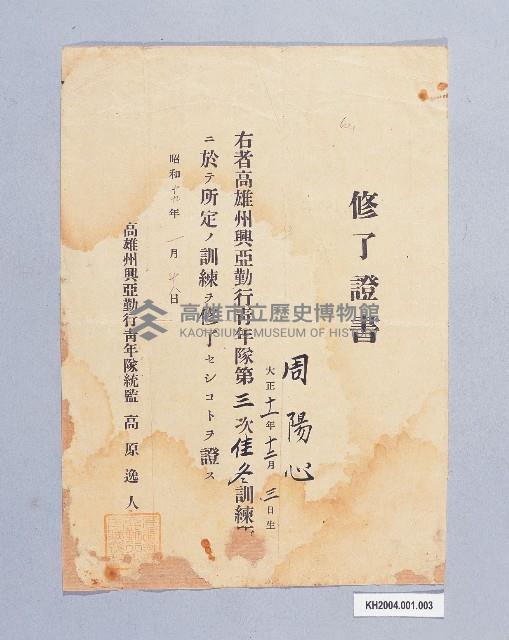 修了證書
周陽心
大正十一年十二月三日生
右者高雄州興亞勤行靑年隊第三次佳冬訓練
ニ於テ所定ノ訓練ヲ修了セシコトヲ證ス
昭和十 年一月十八日
高雄州興亞勤行靑年隊統監 高原逸人
高雄市立歷史博物館
KAOHSIUNG MUSEUM OF HISTORY
KH2004.001.003